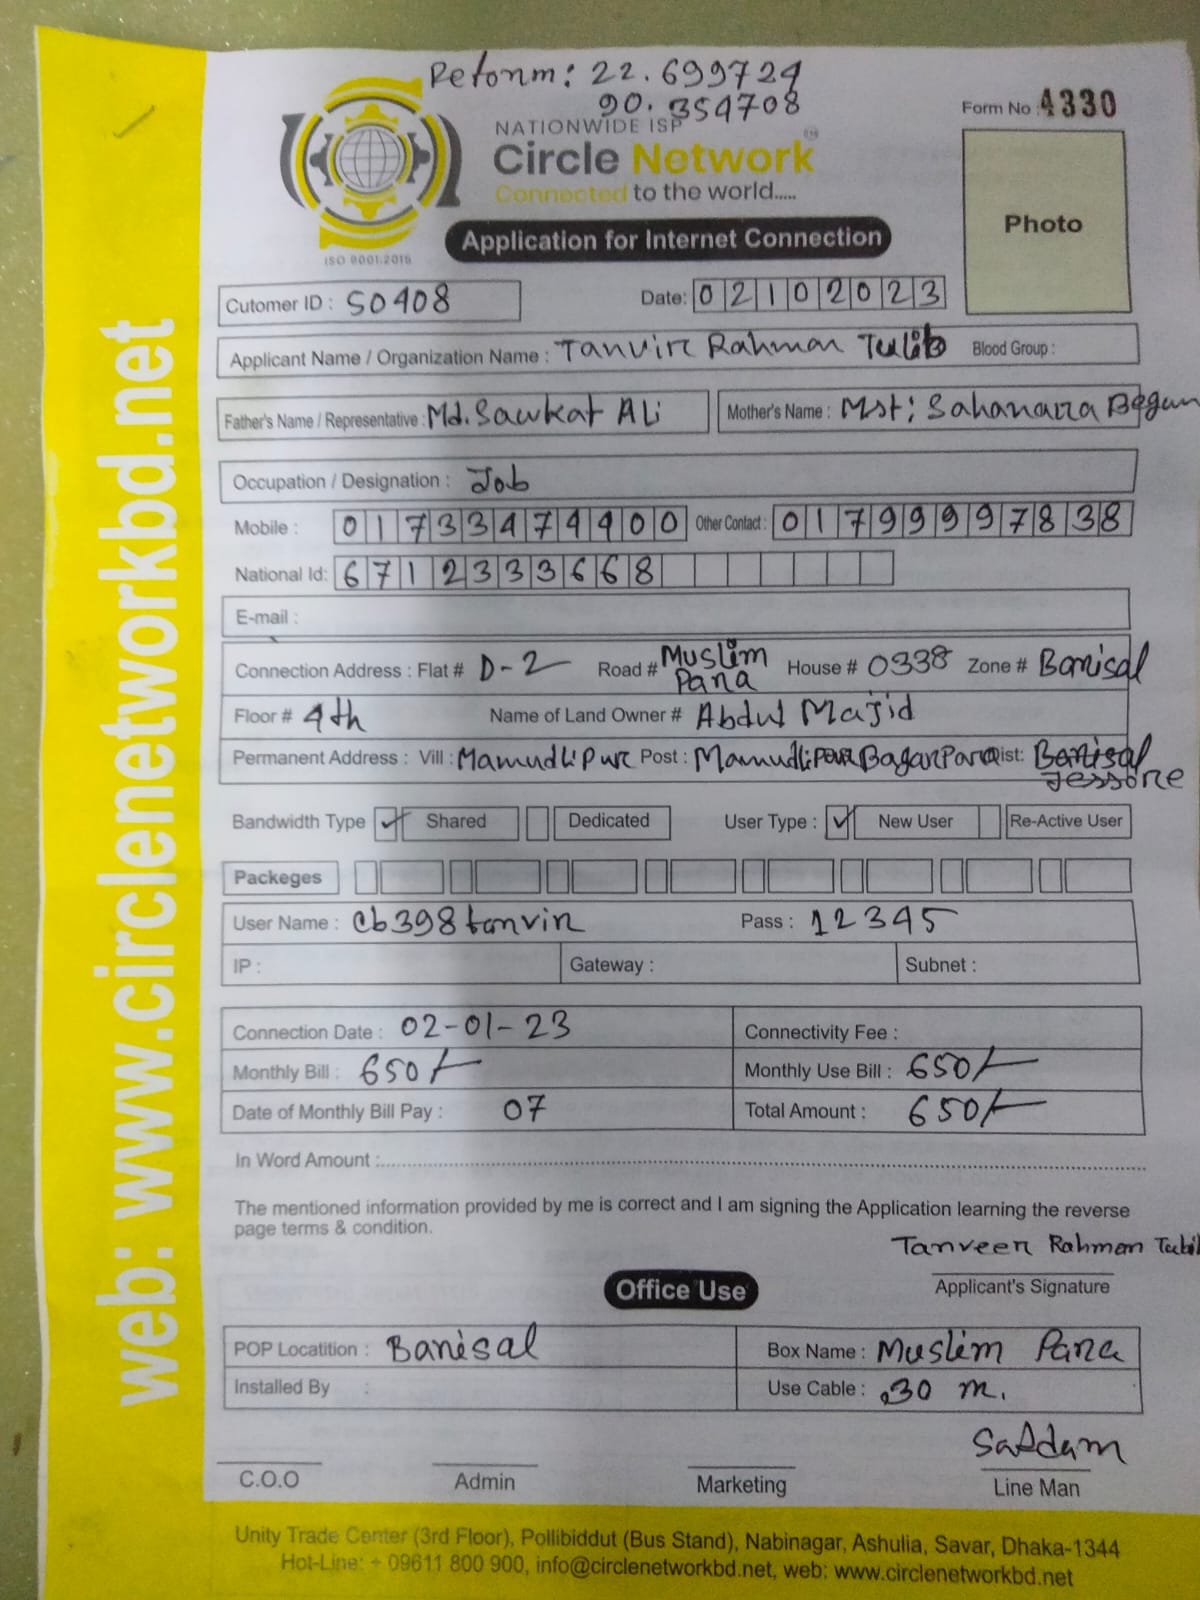 Retonm: 22.699729
90.354708
NATIONWIDE ISP
Circle Network
Connected to the world.....
ISO 9001:2015
Form No : 4330
Photo
Application for Internet Connection
Cutomer ID : S0408
Date: 02102023
Applicant Name / Organization Name : Tanvir Rahman Tulib Blood Group :
Father's Name / Representative : Md. Sawkat Ali Mother's Name : Mst: Sahanara Begum
Occupation / Designation : Job
Mobile : 01733474400 Other Contact : 01799997838
National Id: 6712333668
E-mail :
Connection Address : Flat # D-2 Road # Muslim Para House # 0338 Zone # Barisal
Floor # 4th Name of Land Owner # Abdul Majid
Permanent Address : Vill : Mamudlipur Post : Mamudlipur BagarPara Dist: Barisal
Jessore
Bandwidth Type ✓ Shared Dedicated User Type : ✓ New User Re-Active User
Packeges
User Name : cb398tanvir Pass : 12345
IP : Gateway : Subnet :
Connection Date : 02-01-23 Connectivity Fee :
Monthly Bill : 650/- Monthly Use Bill : 650/-
Date of Monthly Bill Pay : 07 Total Amount : 650/-
In Word Amount :
The mentioned information provided by me is correct and I am signing the Application learning the reverse
page terms & condition.
Tanveer Rahman Tulib
Applicant's Signature
Office Use
POP Locatition : Barisal Box Name : Muslim Para
Installed By : Use Cable : 30 m.
Saddam
C.O.O Admin Marketing Line Man
Unity Trade Center (3rd Floor), Pollibiddut (Bus Stand), Nabinagar, Ashulia, Savar, Dhaka-1344
Hot-Line: + 09611 800 900, info@circlenetworkbd.net, web: www.circlenetworkbd.net
web: www.circlenetworkbd.net